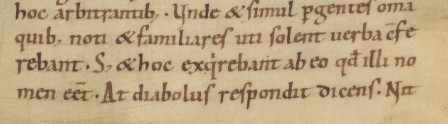 hoc arbitrantib; . Vnde & simul pgentes oma
quib; noti & familiares uti solent uerba cfe
rebant . S; & hoc exqrebant ab eo qđ illi no
men eet . At diabolus respondit dicens . Nn